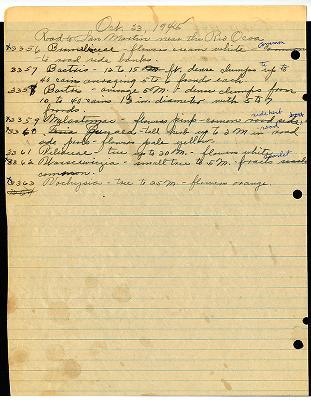 Oct. 23, 1946
Road to San Martin near the Rio Ocoa
3356 Bromeliaceae - flowers cream white common
to road side banks.
3357 Bactris - 12 to 15 ft. dense clumps to
40 canes averaging 5 to 6 fronds each
3358 Bactris - average 5 M. dense clumps from
10 to 40 canes 1½ in. diameter with 5 to 7
fronds
3359 Melastoma - flowers pink - common road side
3360 tall herb up to 2 M. road
side - flowers pale yellow.
3361 - tree up to 20 M. - flowers white
3362 Warscewiczia - small tree to 5 M. - bracts scarlet
common.
3363 Vochysia - tree to 25 M. - flowers orange.